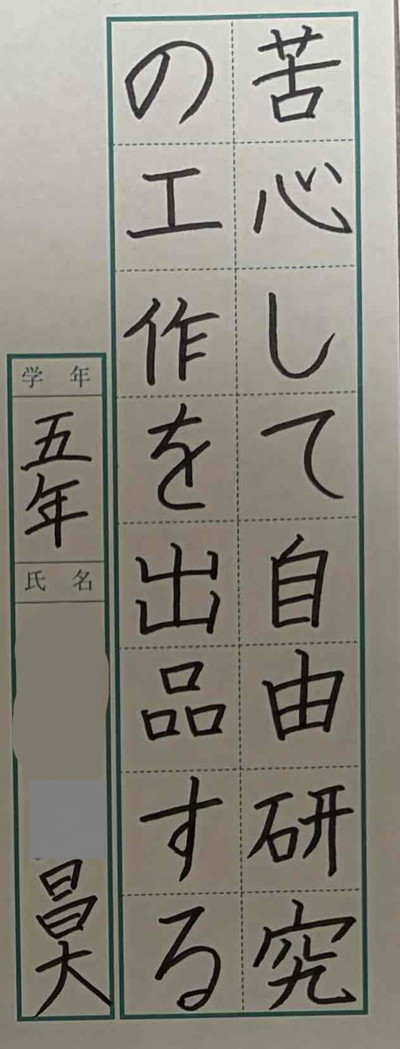 苦心して自由研究
の工作を出品する
学年
五年
氏名
昌大